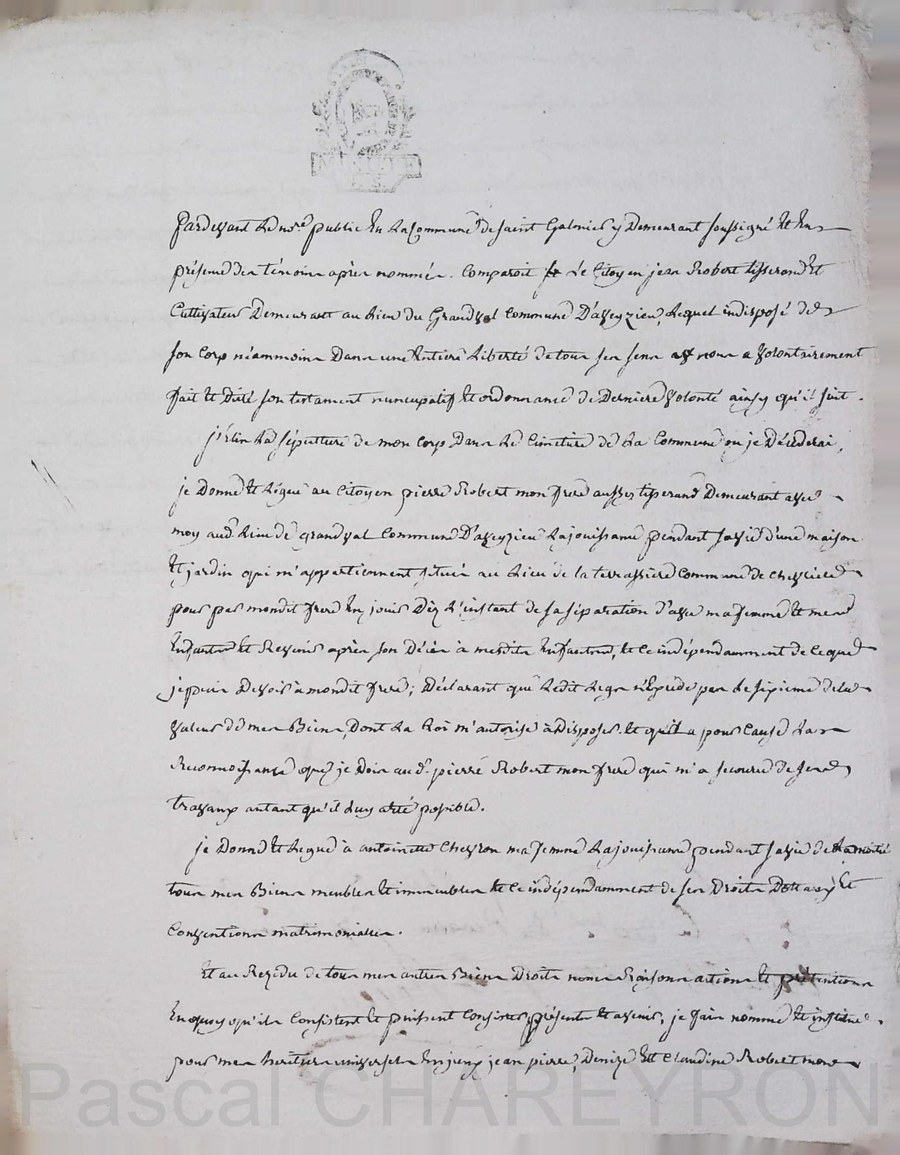 Pardevant Le no.re public En La Commune de Saint Galmier y Demeurant soussigné Et En
présence des témoins après nommés. Comparoit Le Citoyen jean Robert tisserand Et
Cultivateur Demeurant au Lieu du Grandval Commune D'aveyzieu, Lequel indisposé de
son Corp néammoins Dans une Entiere Liberté de tous ses sens nous a Volontairement
fait Et Dicté son testament nuncupatif Et ordonnance de Derniere Volonté ainsy qu'il suit.
j'Elis La sépulture de mon Corp Dans Le Cimetiere de La Commune ou je Décederai,
je Donne Et Légue au Citoyen pierre Robert mon frere aussy tisserand Demeurant avec
moy aud. Lieu de grandval Commune D'aveyzieu La jouissance pendant sa vie d'une maison
Et jardin qui m'appartiennent situés au Lieu de la terrassiere Commune de Chevrieres
pour par mondit frere En jouir Dez L'instant de sa séparation d'avec ma femme Et mes
Enfants Et Revenir après son Décès à mesdits Enfants, Et ce indépendamment de ce que
je puis Devoir à mondit frere; Déclarant que Ledit Legs n'Excede pas Le sixieme de la
Valeur de mes Biens, Dont La Loi m'autorise à Disposer Et qu'il a pour Cause La
Reconnoissance que je Dois aud. pierre Robert mon frere qui m'a secouru de ses
travaux autant qu'il Luy a été possible.
je Donne Et Legue à antoinette Cheyron ma femme La jouissance pendant sa vie de La moitié
tous mes Biens meubles Et immeubles Et ce indépendamment de ses Droits Dottaux Et
Conventions matrimoniales.
Et au Rezidu de tous mes autres Biens Droits noms Raisons actions Et prétentions
En quoy qu'ils Consistent Et puissent Consister, présents Et avenir, je fais nomme Et institue
pour mes heritiers universels Enjeux jean pierre, Denize Et Claudine Robert mes
Pascal CHAREYRON